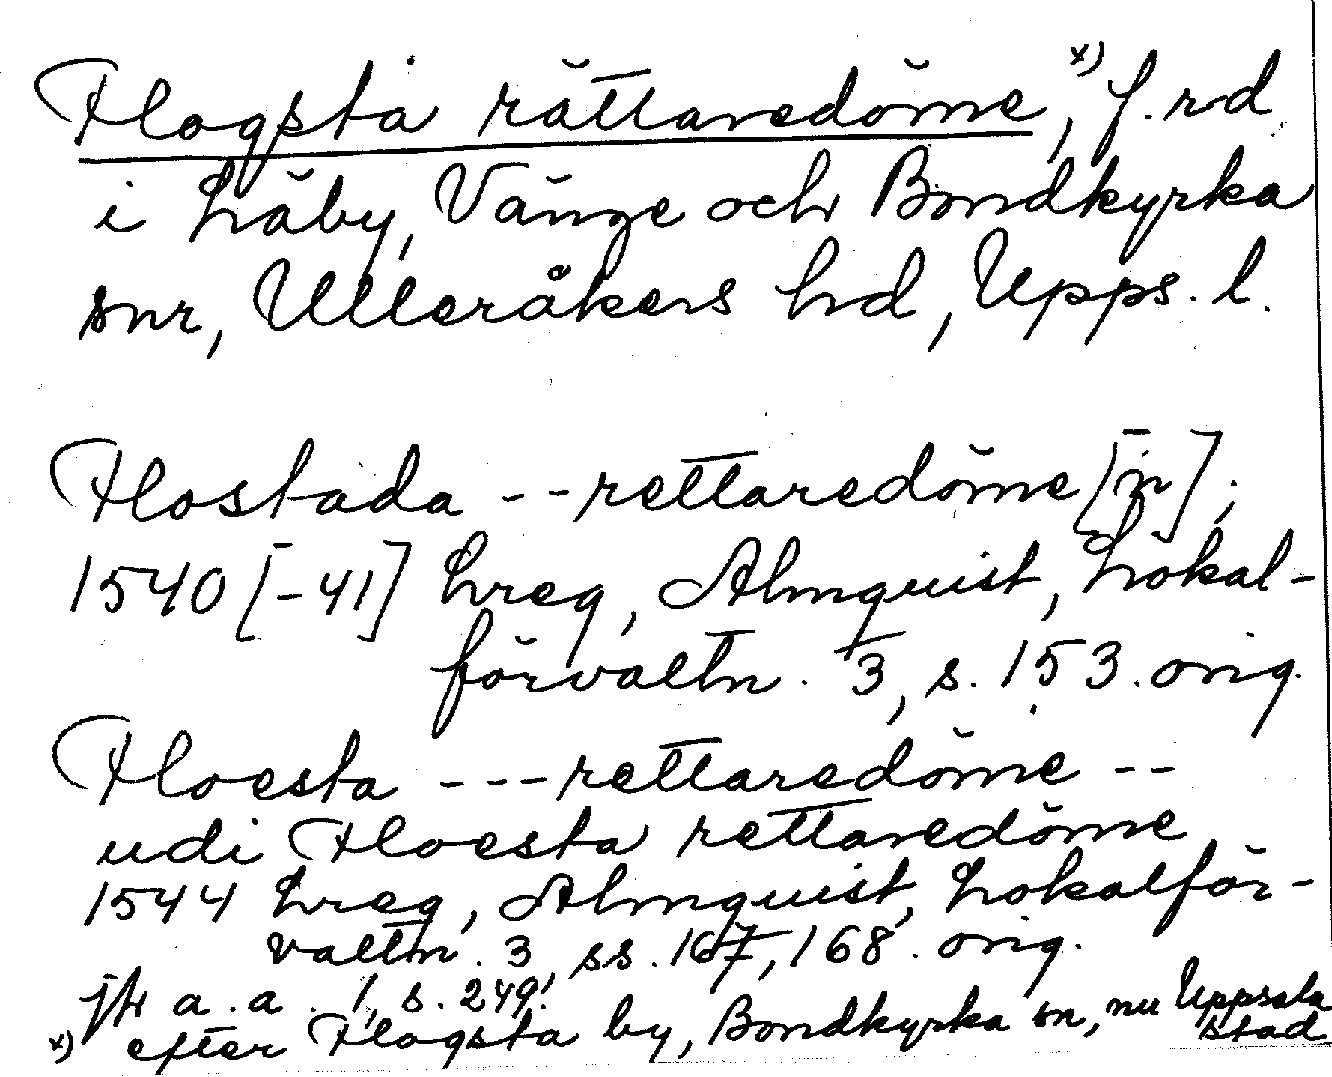 Flogsta rättaredöme, x) f. rd
i Läby, Vänge och Bondkyrka
snr, Ulleråkers hd, Upps. l.
Flostada -- rettaredöme [n̄];
1540 [-41] Lreg, Almquist, Lokal-
förvaltn. 3, s. 153. orig.
Floesta --- rettaredöme --
udi Floesta rettaredöme
1544 Lreg, Almquist, Lokalför-
valtn. 3, ss. 167, 168. orig.
jfr a. a. 1, s. 249.
x) efter Flogsta by, Bondkyrka sn, nu Uppsala
stad